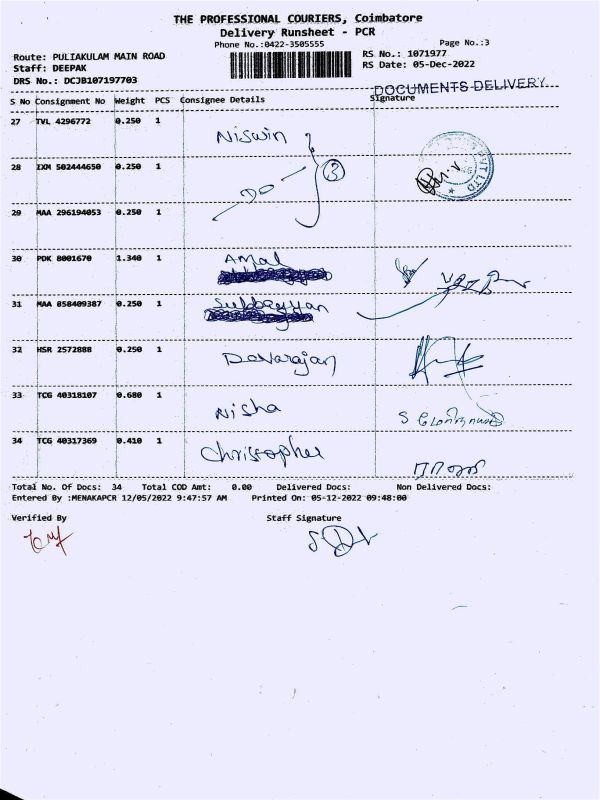 THE PROFESSIONAL COURIERS, Coimbatore
Delivery Runsheet - PCR
Phone No.:0422-3505555
Page No.:3
Route: PULIAKULAM MAIN ROAD
RS No.: 1071977
Staff: DEEPAK
RS Date: 05-Dec-2022
DRS No.: DCJB107197703
DOCUMENTS DELIVERY
S No Consignment No Weight PCS Consignee Details Signature
27 TVL 4296772 0.250 1 Niswin
28 IXM 502444650 0.250 1 DO 3
29 MAA 296194053 0.250 1
PVT LTD
30 PDK 8001670 1.340 1 Amal
31 MAA 058409387 0.250 1 Subbayyan
32 HSR 2572888 0.250 1 Devarajan
33 TCG 40318107 0.680 1 Nisha
34 TCG 40317369 0.410 1 Christopher
Total No. Of Docs: 34 Total COD Amt: 0.00 Delivered Docs: Non Delivered Docs:
Entered By :MENAKAPCR 12/05/2022 9:47:57 AM Printed On: 05-12-2022 09:48:00
Verified By Staff Signature